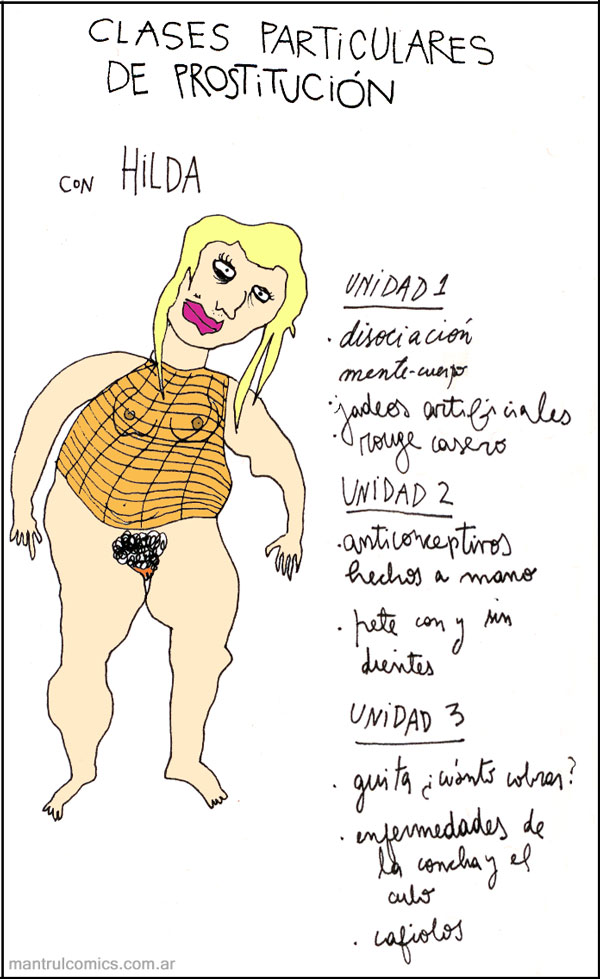 CLASES PARTICULARES
DE PROSTITUCIÓN
CON HILDA
UNIDAD 1
· disociación
mente-cuerpo
· jadeos artificiales
· rouge casero
UNIDAD 2
· anticonceptivos
hechos a mano
· pete con y sin
dientes
UNIDAD 3
· guita ¿cuánto cobrar?
· enfermedades de
la concha y el
culo
· cafiolos
mantrulcomics.com.ar